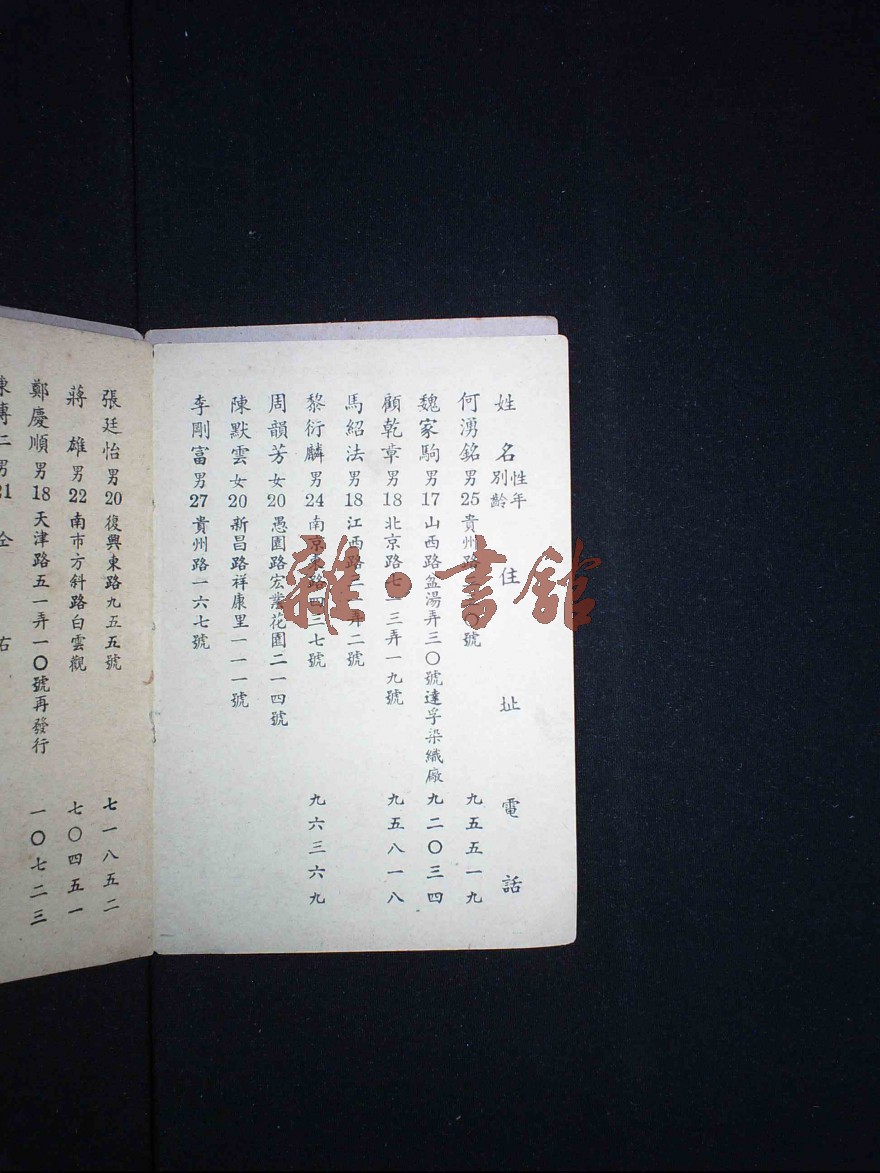 姓名 性別 年齡 住址 電話
何湧銘 男 25 貴州路 〇號 九五五一九
魏家駒 男 17 山西路盆湯弄三〇號達孚染織廠 九二〇三四
顧乾章 男 18 北京路七一三弄一九號 九五八一八
馬紹法 男 18 江西路三 弄二號
黎衍麟 男 24 南京東路四三七號 九六三六九
周韻芳 女 20 愚園路宏業花園二一四號
陳默雲 女 20 新昌路祥康里一一一號
李剛富 男 27 貴州路一六七號
張廷怡 男 20 復興東路九五五號 七一八五二
蔣雄 男 22 南市方斜路白雲觀 七〇四五一
鄭慶順 男 18 天津路五一弄一〇號再發行 一〇七二三
陳傳二 男 21 仝右
雜·書館